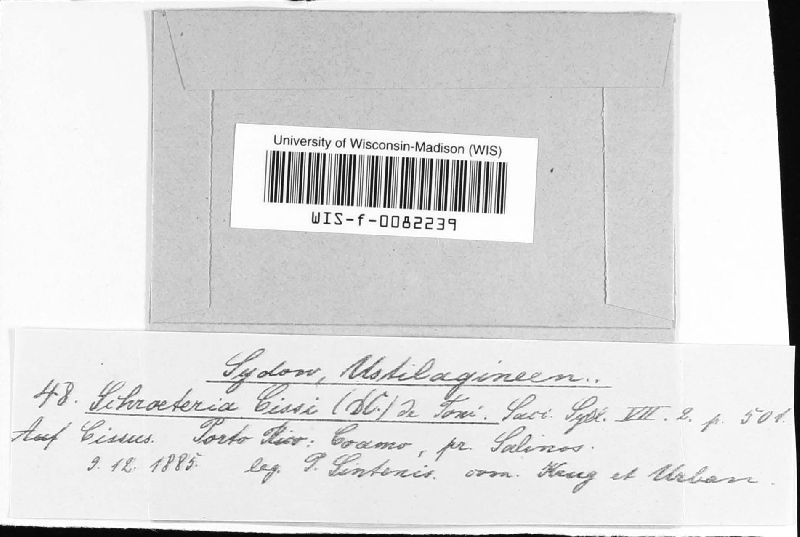 University of Wisconsin-Madison (WIS)
WIS-f-0082239
Sydow, Ustilagineen.
48. Schroeteria Cissi (DC.) de Toni. Sacc. Syll. VII. 2. p. 501.
Auf Cissus. Porto Rico: Coamo, pr. Salinos.
9. 12. 1885. leg. P. Sintenis. com. Krug et Urban.